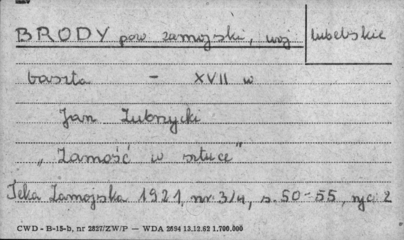 BRODY pow zamojski, woj lubelskie
baszta - XVII w
Jan Zubrzycki
"Zamość w sztuce"
Teka Zamojska 1921, nr 3/4, s. 50-55, ryc 2
CWD - B-15-b, nr 2827/ZW/P — WDA 2694 13.12.62 1.700.000